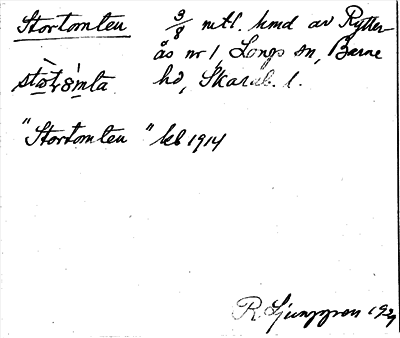 Stortomten 3/8 mtl. hmd av Rytter-
ås nr 1, Longs sn, Barne
hd, Skarab. l.
"Stortomten" kb 1914
R. Ljunggren